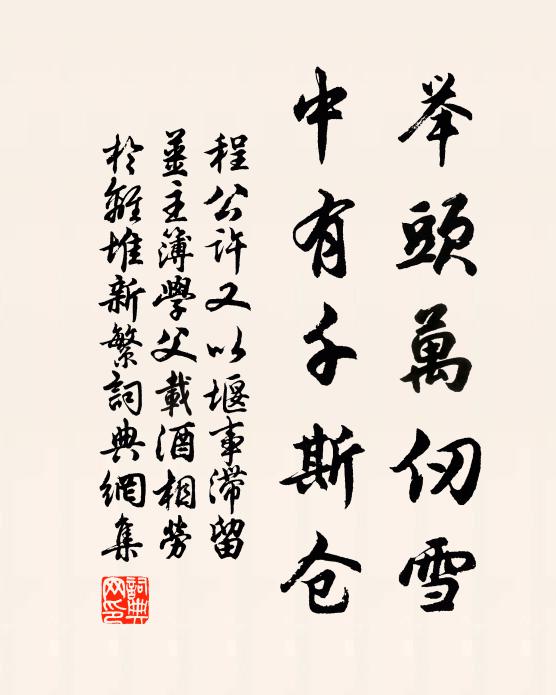 举頭萬仞雪
中有千斯仓
程公許又以堰事滯留
薑主簿學父載酒相勞
於離堆新繁詞典網集
詞典网印